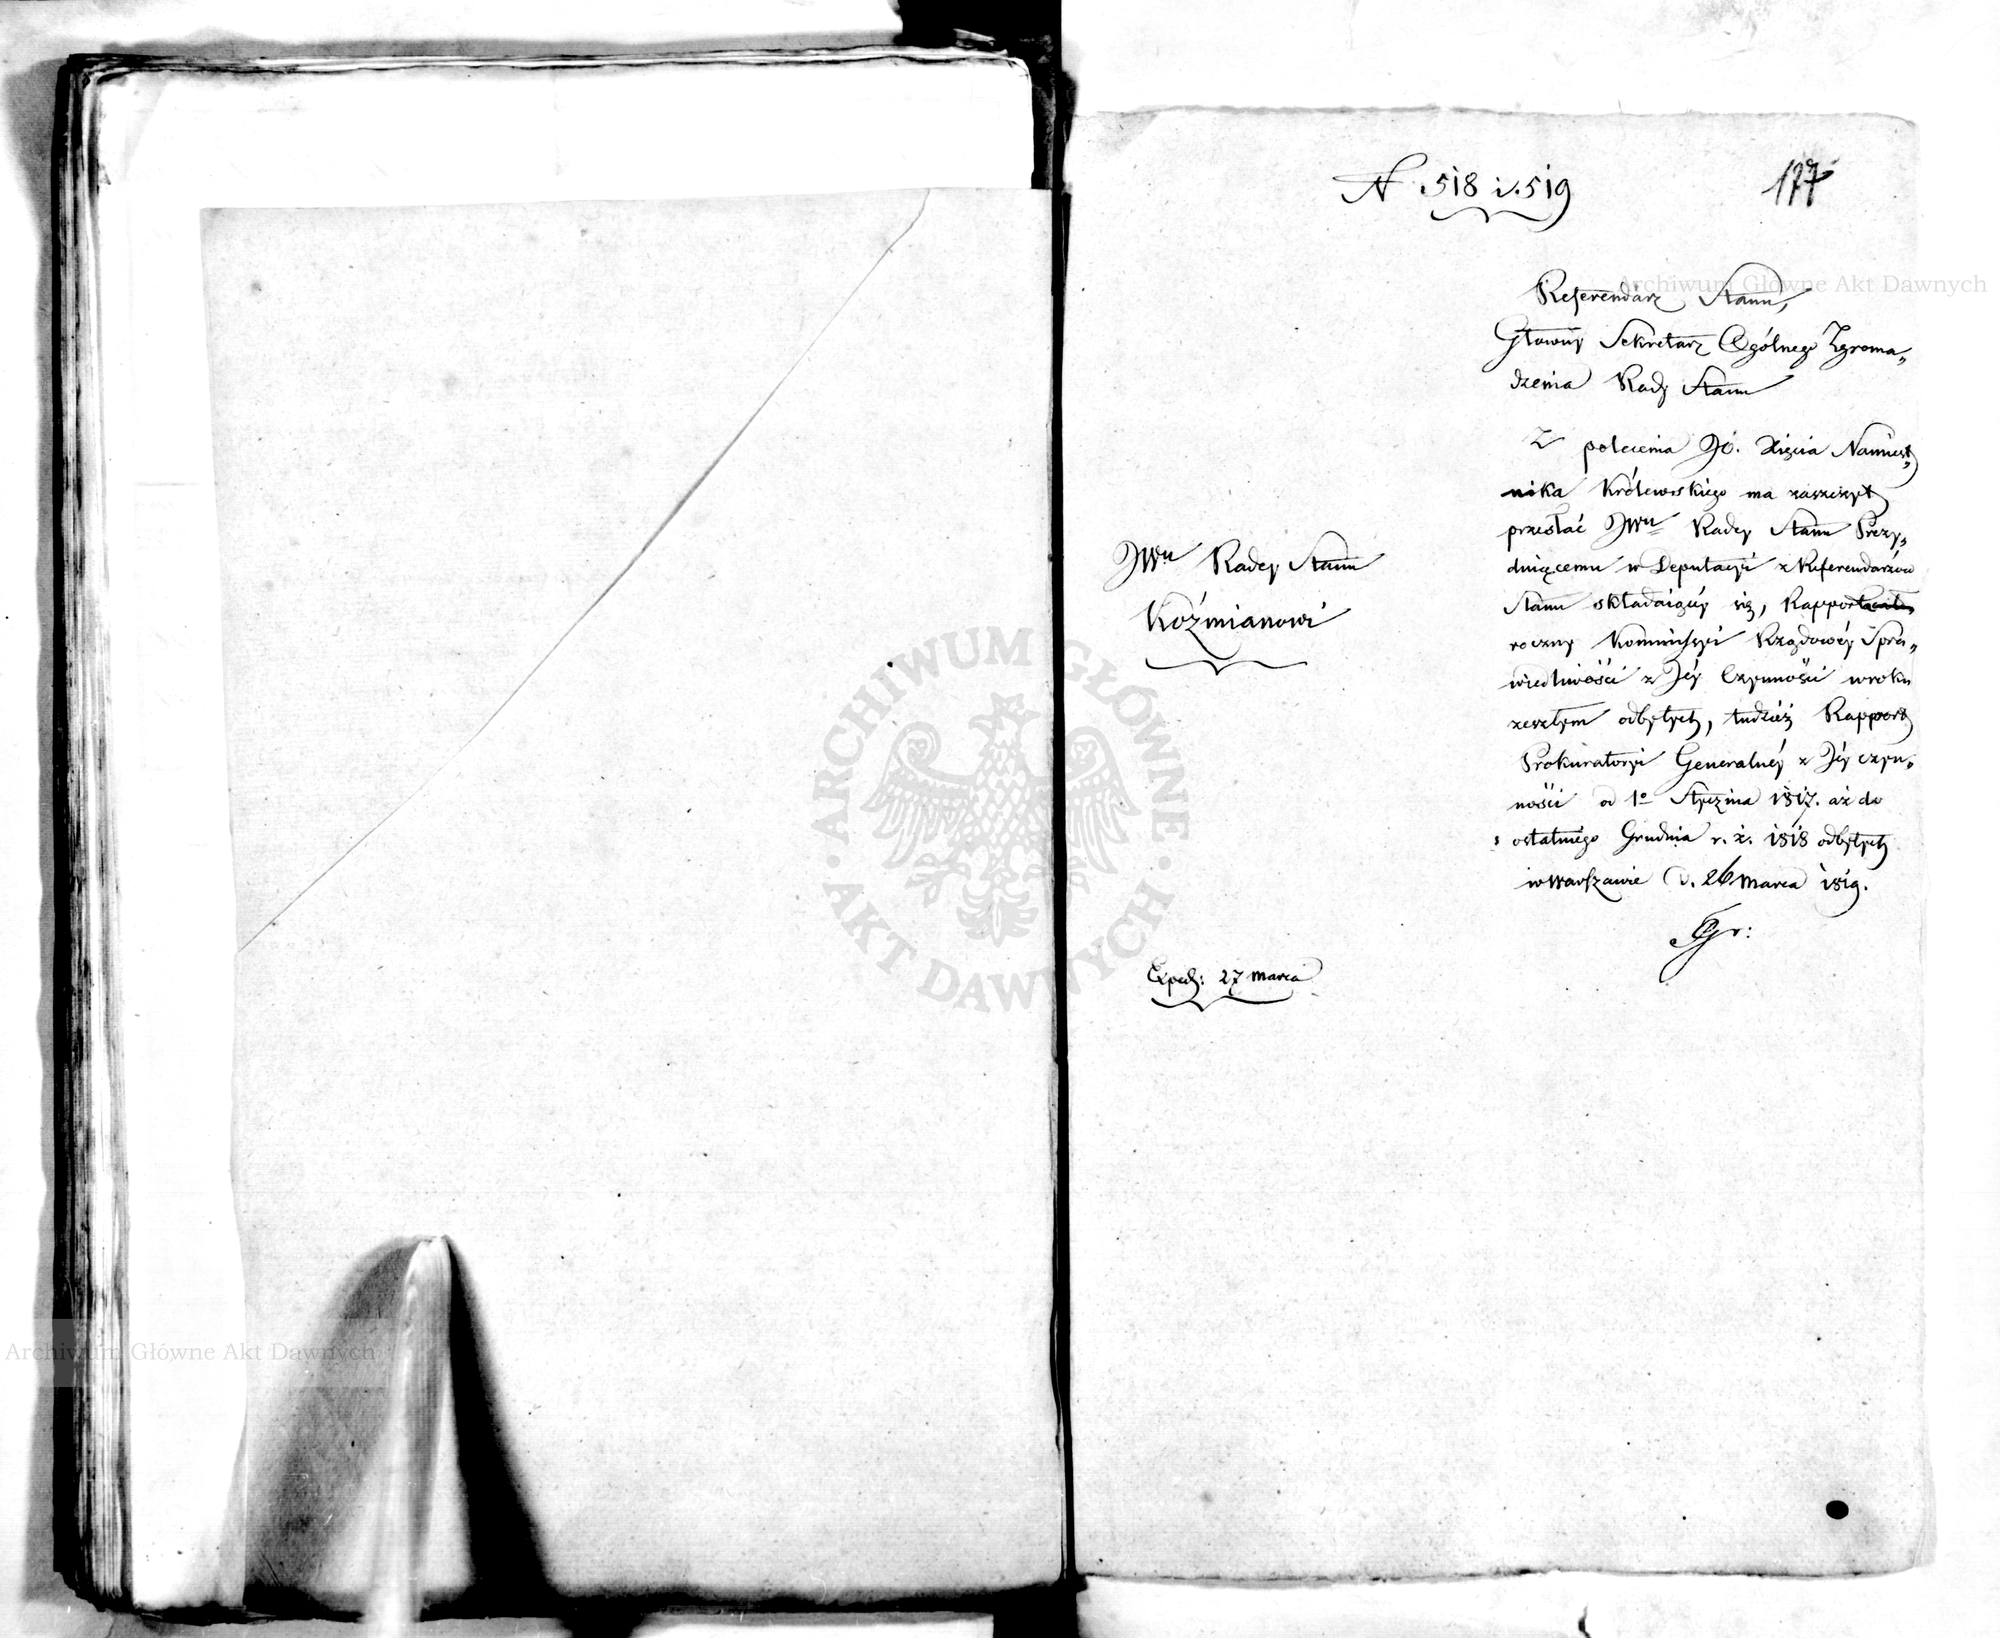 N 518 i 519
177
Referendarz Stanu,
Głowny Sekretarz Ogólnego Zgroma„
dzenia Rady Stanu
Z polecenia JO. Xięcia Namiest„
nika Królewskiego ma zaszczyt
przesłać JWu Radcy Stanu Prezy„
duiącemu w Deputacyi z Referendarzów
Stanu składaiącéy się, Rapport
roczny Kommissyi Rządowéy Spra„
wiedliwości z Jéy Czynności w roku
zeszłym odbytych, tudzież Rapport
Prokuratoryi Generalnéy z Jéy czyn„
ności od 1o Stycznia 1817. aż do
ostatniego Grudnia r. z. 1818 odbytych
w Warszawie d. 26 Marca 1819.
JWu Radcy Stanu
Koźmianowi
Exped: 27 Marca
Archiwum Główne Akt Dawnych
ARCHIWUM GŁÓWNE
AKT DAWNYCH
Archiwum Główne Akt Dawnych